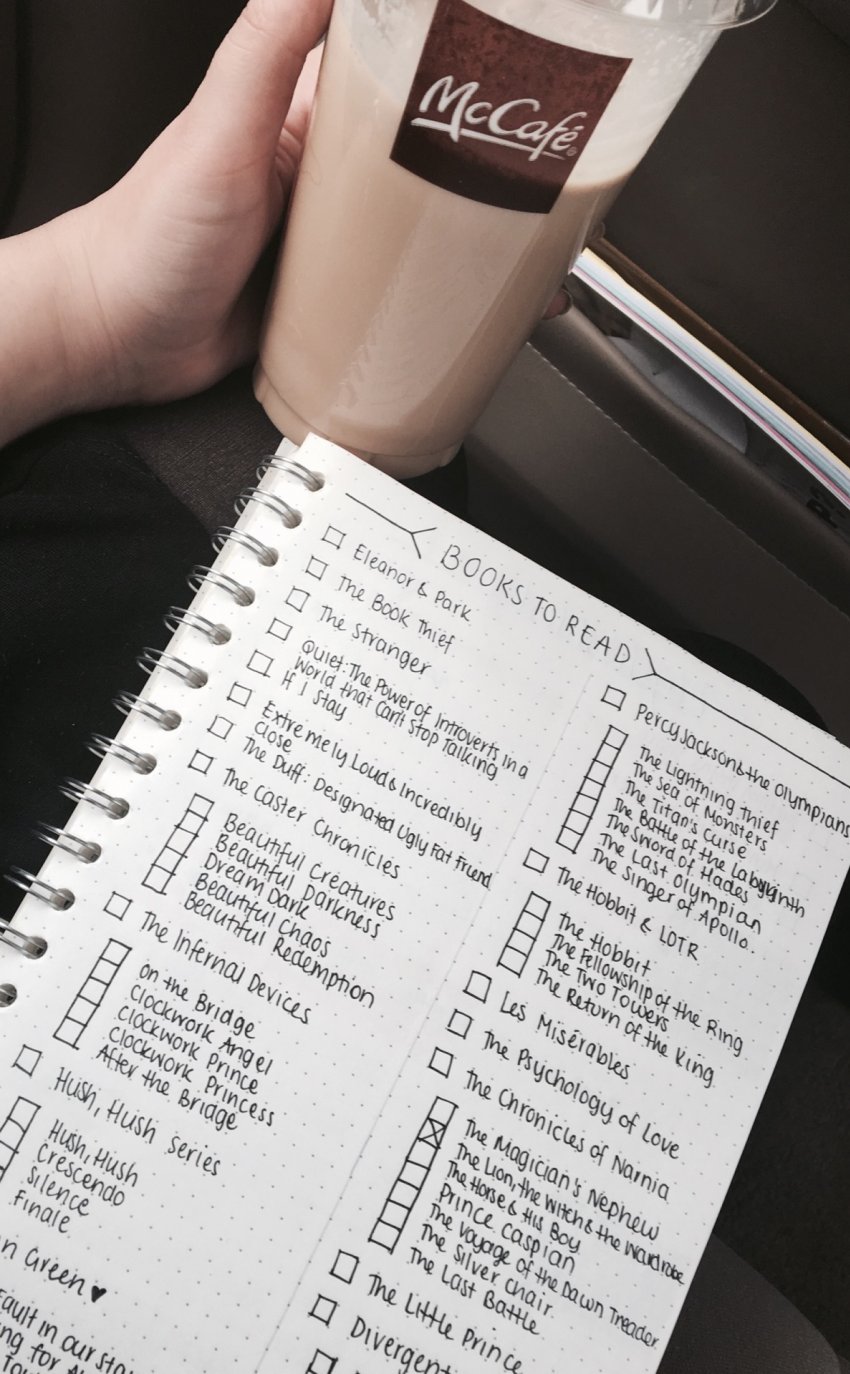 McCafé®
BOOKS TO READ
Eleanor & Park
The Book Thief
The Stranger
Quiet: The Power of Introverts in a
World that Can't Stop Talking
If I Stay
Extremely Loud & Incredibly
Close
The Duff: Designated Ugly Fat Friend
The Caster Chronicles
Beautiful Creatures
Beautiful Darkness
Dream Dark
Beautiful Chaos
Beautiful Redemption
The Infernal Devices
On the Bridge
Clockwork Angel
Clockwork Prince
Clockwork Princess
After the Bridge
Hush, Hush Series
Hush, Hush
Crescendo
Silence
Finale
Green ♥
Fault in our
for
Percy Jackson & the Olympians
The Lightning Thief
The Sea of Monsters
The Titan's Curse
The Battle of the Labyrinth
The Sword of Hades
The Last Olympian
The Singer of Apollo
The Hobbit & LOTR
The Hobbit
The Fellowship of the Ring
The Two Towers
The Return of the King
Les Misérables
The Psychology of Love
The Chronicles of Narnia
The Magician's Nephew
The Lion, the Witch & the Wardrobe
The Horse & His Boy
Prince Caspian
The Voyage of the Dawn Treader
The Silver Chair
The Last Battle
The Little Prince
Divergent